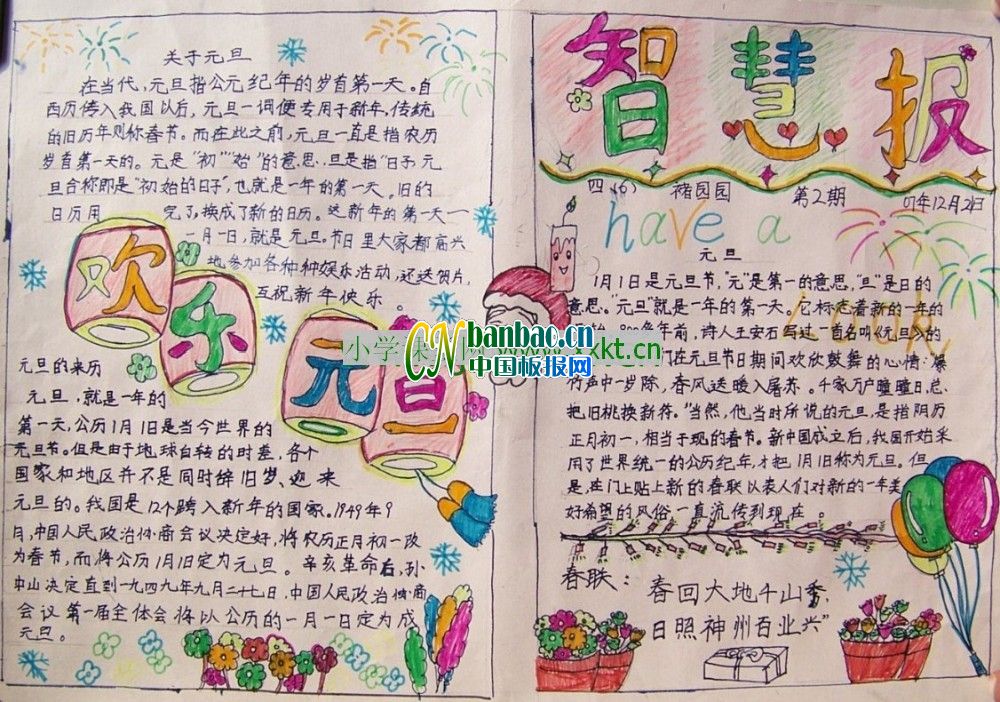 关于元旦
在当代,元旦指公元纪年的岁首第一天。自
西历传入我国以后,元旦一词便专用于新年,传统
的旧历年则称春节。而在此之前,元旦一直是指农历
岁首第一天的。元是"初""始"的意思,旦是指"日子"元
旦合称即是"初始的日子",也就是一年的第一天。旧的
日历用 完了,换成了新的日历。这新年的第一天一
一月一日,就是元旦。节日里大家都高兴
地参加各种种娱乐活动,还送贺片,
互祝新年快乐。
欢乐元旦
元旦的来历
元旦,就是一年的
第一天,公历1月1日是当今世界的
元旦节。但是由于地球自转的时差,各个
国家和地区并不是同时辞旧岁、迎来
元旦的。我国是12个跨入新年的国家。1949年9
日,中国人民政治协商会议决定好,将农历正月初一改
为春节,而将公历1月1日定为元旦。辛亥革命后,孙
中山决定直到一九四九年九月二十七日,中国人民政治协商
会议第一届全体会将以公历的一月一日定为成
元旦。
智慧报
四(6) 褚园园 第2期 07年12月2日
have a
元旦
1月1日是元旦节,"元"是第一的意思,"旦"是日的
意思。"元旦"就是一年的第一天。它标志着新的一年的
年前,诗人王安石写过一首名叫《元旦》的
们在元旦节日期间欢欣鼓舞的心情:"爆
竹声中一岁除,春风送暖入屠苏。千家万户曈曈日,总
把旧桃换新符。"当然,他当时所说的元旦,是指阴历
正月初一,相当于现的春节。新中国成立后,我国开始采
用了世界统一的公历纪年,才把1月1日称为元旦。但
是,在门上贴上新的春联以表人们对新的一年美
好希望的风俗一直流传到现在。
春联:
春回大地千山秀
日照神州百业兴"
banbao.cn
中国板报网
小学 www. xxkt.cn